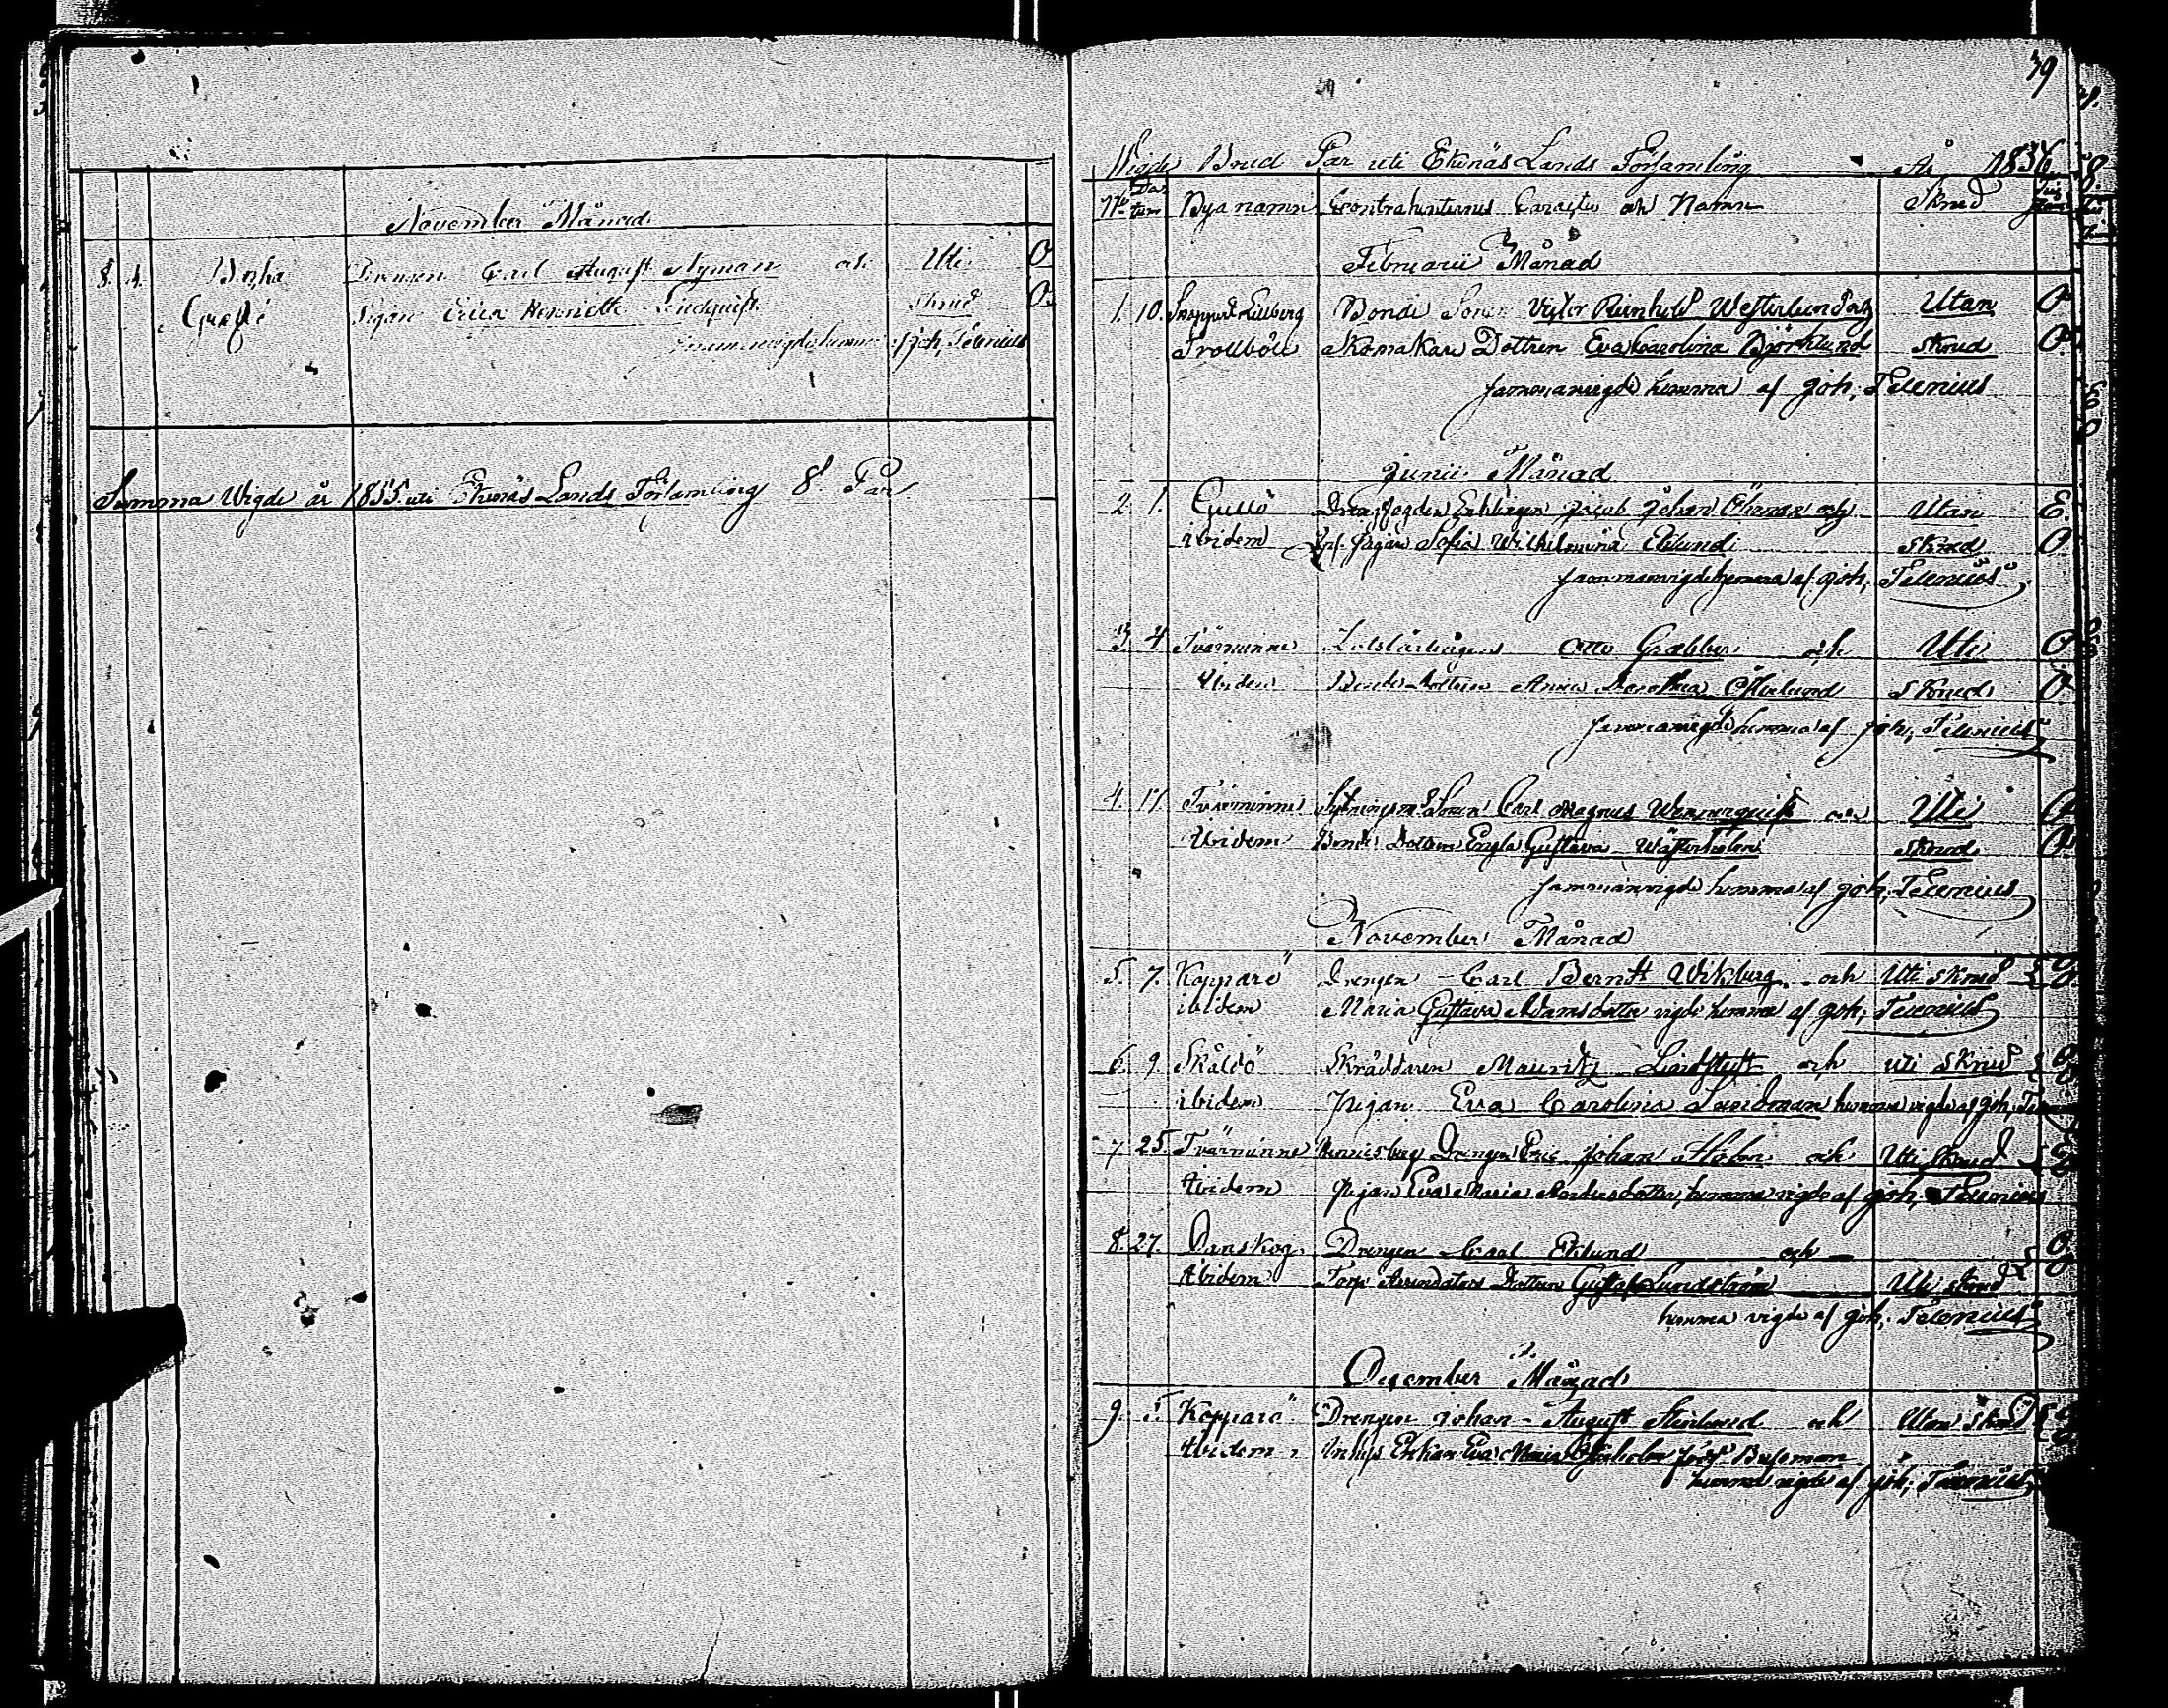 November Månad
8. 4. Drengen Carl August Nyman och Uti O
Grefsö Pigan Erica Henriette Lindquist Skrud O
sammanvigde hemma af Joh, Telenius
Summa Wigde år 1855 uti Ekenäs Lands Församling 8 Par
39
Wigde Brud Par uti Ekenäs Lands Församling År 1856
No Datum Byanamn Contrahenternes Caracter och Namn Skrud
Februarii Månad
1. 10. Bonde Sonen Victor Reinhold Westerlund och Utan O
Trollböle Skomakare Dottren Eva Carolina Björklund Skrud O
sammanvigde hemma af Joh, Telenius
Junii Månad
2 1. Gullö Enklingen Jacob Johan Öhman och Utan E.
ibidem Pigan Sofia Wilhelmina Eklund Skrud O
sammanvigde hemma af Joh, Telenius
3 4 Tvärminne Lotslärlingen Otto Grabber och Uti O
Ibidem Bonde Dottren Anna Dorothea Österlund Skrud O
sammanvigde hemma af Joh, Telenius
4. 17. Tvärminne Sonen Carl Magnus Wennerquist och Uti O
Ibidem Bonde Dottren Engla Gustava Skrud O
sammanvigde hemma af Joh, Telenius
November Månad
5. 7. Kopparö Drengen Carl Berntt Wikberg och Uti Skrud O
ibidem Maria Gustava Adamsdotter vigde hemma af Joh, Telenius
6. 9. Skåldö Skräddaren Mauritz Lindstedt och uti Skrud O
ibidem Pigan Eva Carolina Sandman hemma vigde af Joh.
7 25. Tvärminne Drengen Eric Johan Holm och Uti Skrud
Ibidem Pigan Eva Maria Andersdotter, hemma vigde af Joh, Telenius
8. 27. Danskog Drengen Carl Eklund och
Ibidem Torp Arrendators Dottren Gustafva Lundström Uti Skrud
hemma vigde af Joh, Telenius
December Månad
9. 5. Kopparö Drengen Johan August Stenlund och Utan Skrud
Ibidem Inhys Enkan Eva Maria född Bussman
hemma vigde af Joh, Telenius